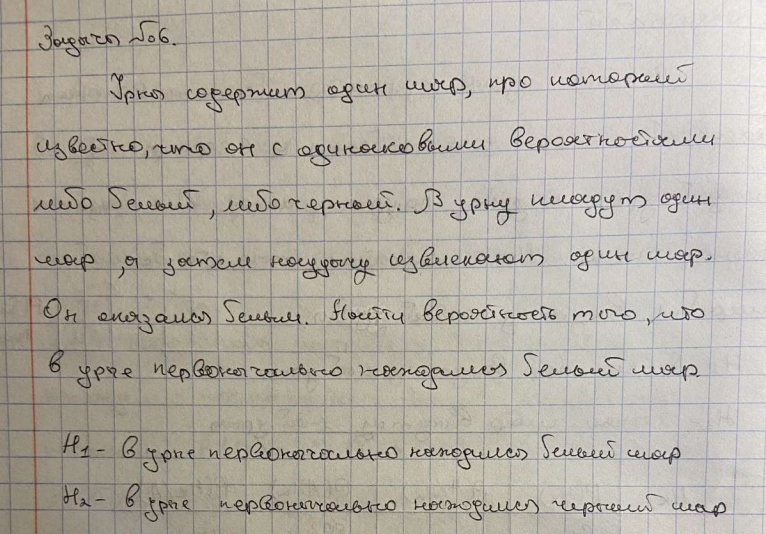 Задача №06.
Урна содержит один шар, про который
известно, что он с одинаковыми вероятностями
либо белый, либо черный. В урну кладут один
шар, а затем наудачу извлекают один шар.
Он оказался белым. Найти вероятность того, что
в урне первоначально находился белый шар.
H1 - в урне первоначально находился белый шар
H2 - в урне первоначально находился черный шар